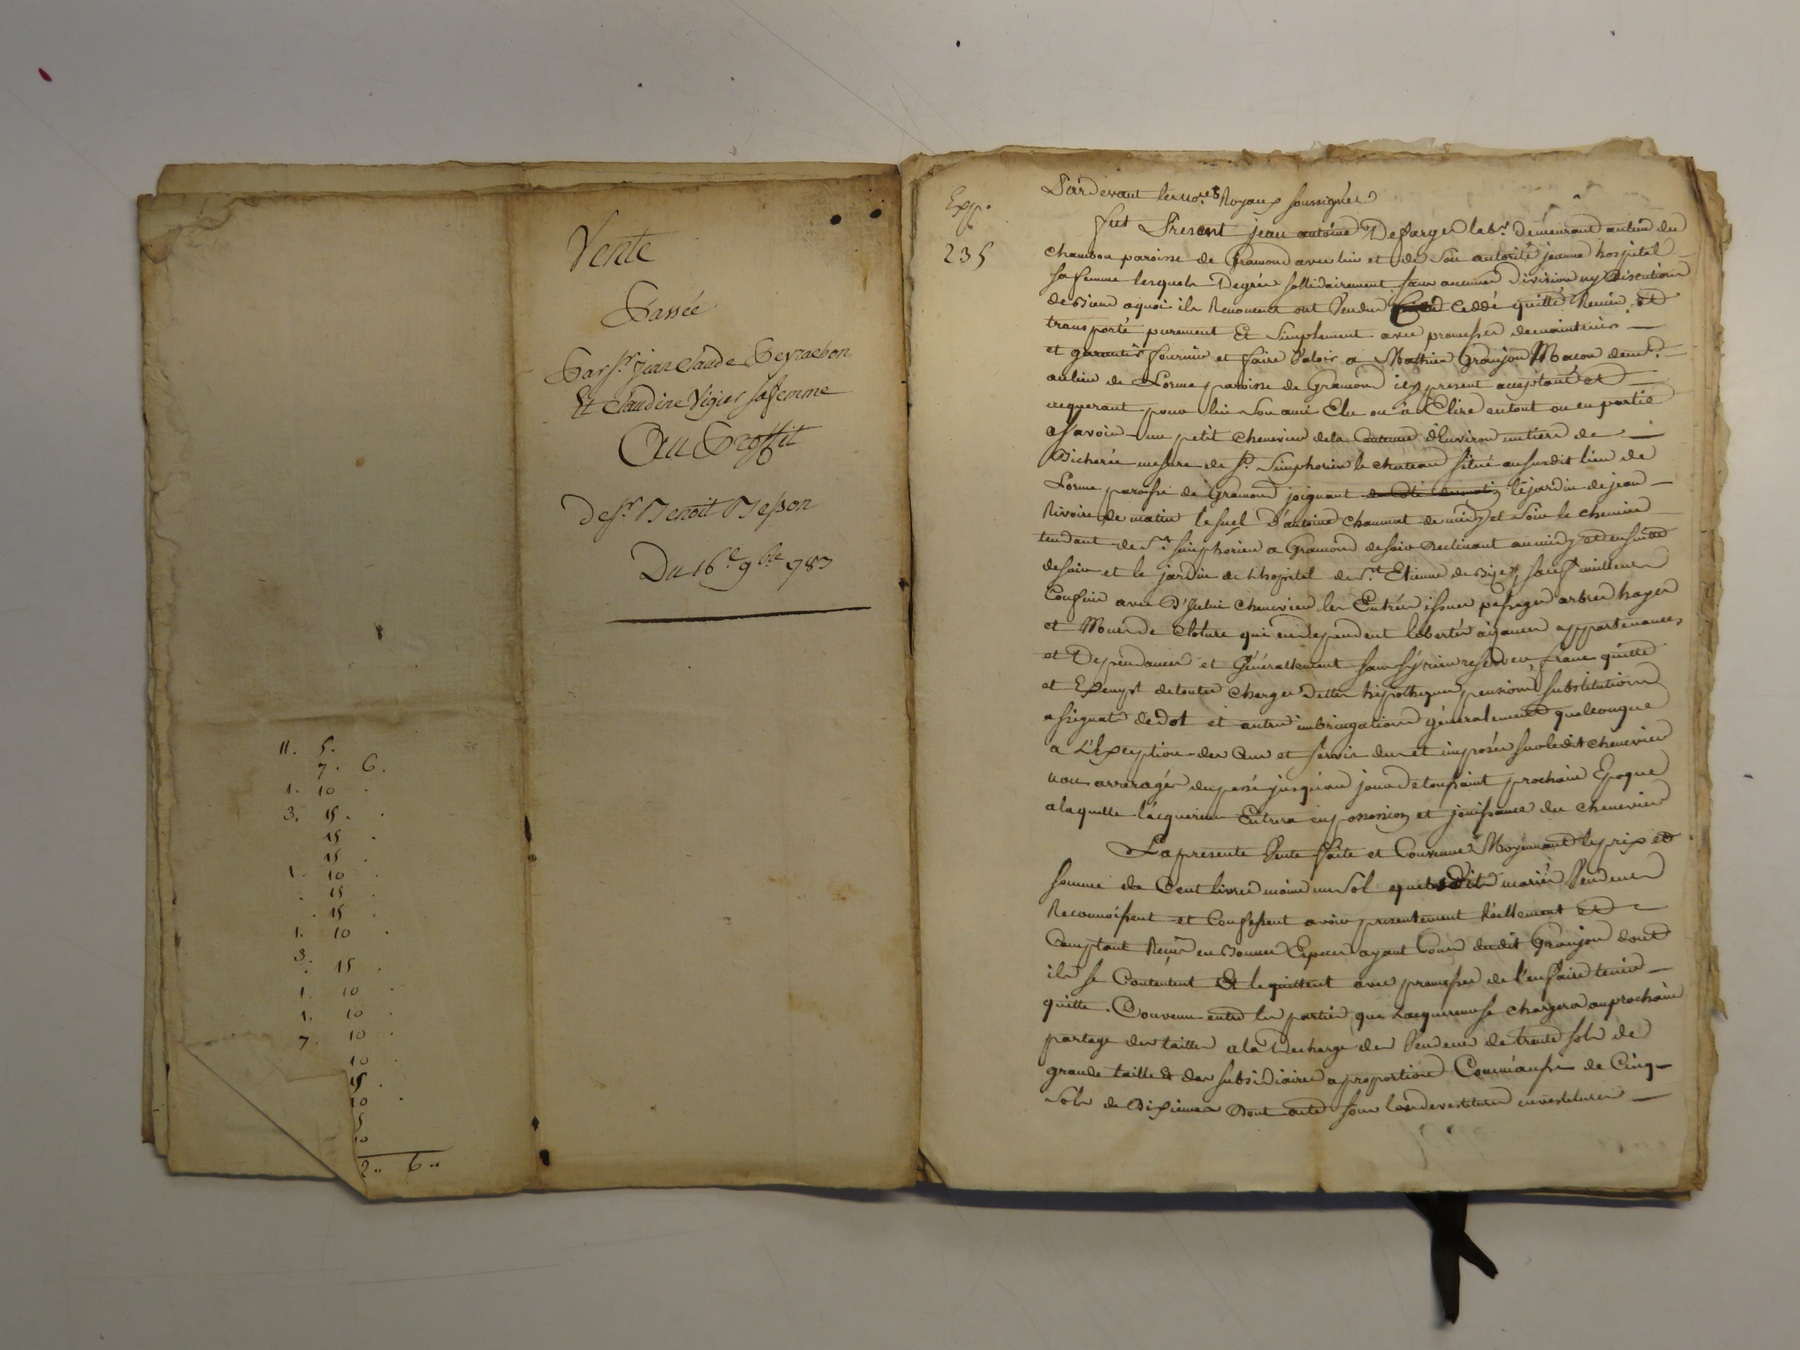 Vente
Passée
Par Sr. Jean Claude Peyrachon
Et Claudine Vigier sa femme
Au Proffit
de Sr. Benoit Besson
Du 16e. 9bre 783
11. 5.
7. 6.
1. 10
3. 15.
15
15
1. 10
15
15
1. 10
3.
15
1. 10
1. 10
7. 10
10
15
10
5
10
2.. 6..
Exp.
235
Pardevant les nores Royaux soussignés
fut Present jean antoine Defarges labr. demeurant au lieu du
chambon paroisse de Gramond avec lui et de son autorité jeanne hospital
sa femme lesquels Degrés sollidairement sans aucune division ny discution
de Biens aquoi ils Renoncent ont Vendu Cedé ceddé quitté Remis et
transporté purement Et Simplement avec promesses de maintenir
et garantir fournir et faire Valoir a Mathieu Granjon Macon demt.
au lieu de Lorme paroisse de Gramond icy present acceptant et
acquerant pour lui Son ami Elu ou à Elire en tout ou en partie
asavoir un petit chenevier de la d'Environ un tiers de
Bicherée mesure de St. Simphorien le chateau Situé au susdit lieu de
Lorme paroisse de Gramond joignant le jardin de jean
Rivoire de matin le suel d'antoine chaumat de midy et Soir le chemin
tendant de St. Simphorien a Gramond de soir declinant au midy et ensuitte
de soir et le jardin de lhopital de St. Etienne de Bize, sauf meilleurs
Confins avec d'Icelui chenevier les Entrées issues passages arbres hayes
et Murs de Cloture qui en dependent libertés aisances appartenances
et Dependances et Générallement sans s'y rien reserver, franc quitte
et Exempt de toutes charges Dettes hipotheques pensions Substitutions
assignat de dot et autres imbringations généralement quelconques
a L'Exception des Cens et servis dus et imposés sur le dit chenevier
non arreragés du passé jusqu'au jour de toussaint prochain Epoque
a laquelle l'acquereur Entrera en possession et jouissance du chenevier
La presente Vente faite et Convenue Moyennant le prix et
somme de Cent livres moins un Sol que lesdits mariés Vendeurs
Reconnoissent et Confessent avoir presentement Réellement et
Comptant Reçue en Bonnes Espèces ayant Cours dudit Granjon dont
ils se Contentent Et le quittent avec promesses de l'en faire tenir
quitte. Convenu entre les parties que Lacquereur se chargera au prochain
partage des tailles a la Decharge des Vendeurs de trente sols de
grande taille Et des Subsidiaires a proportion Comm'aussi de Cinq
Sols de Dixiemes Dont acte sous les devestitures investitures